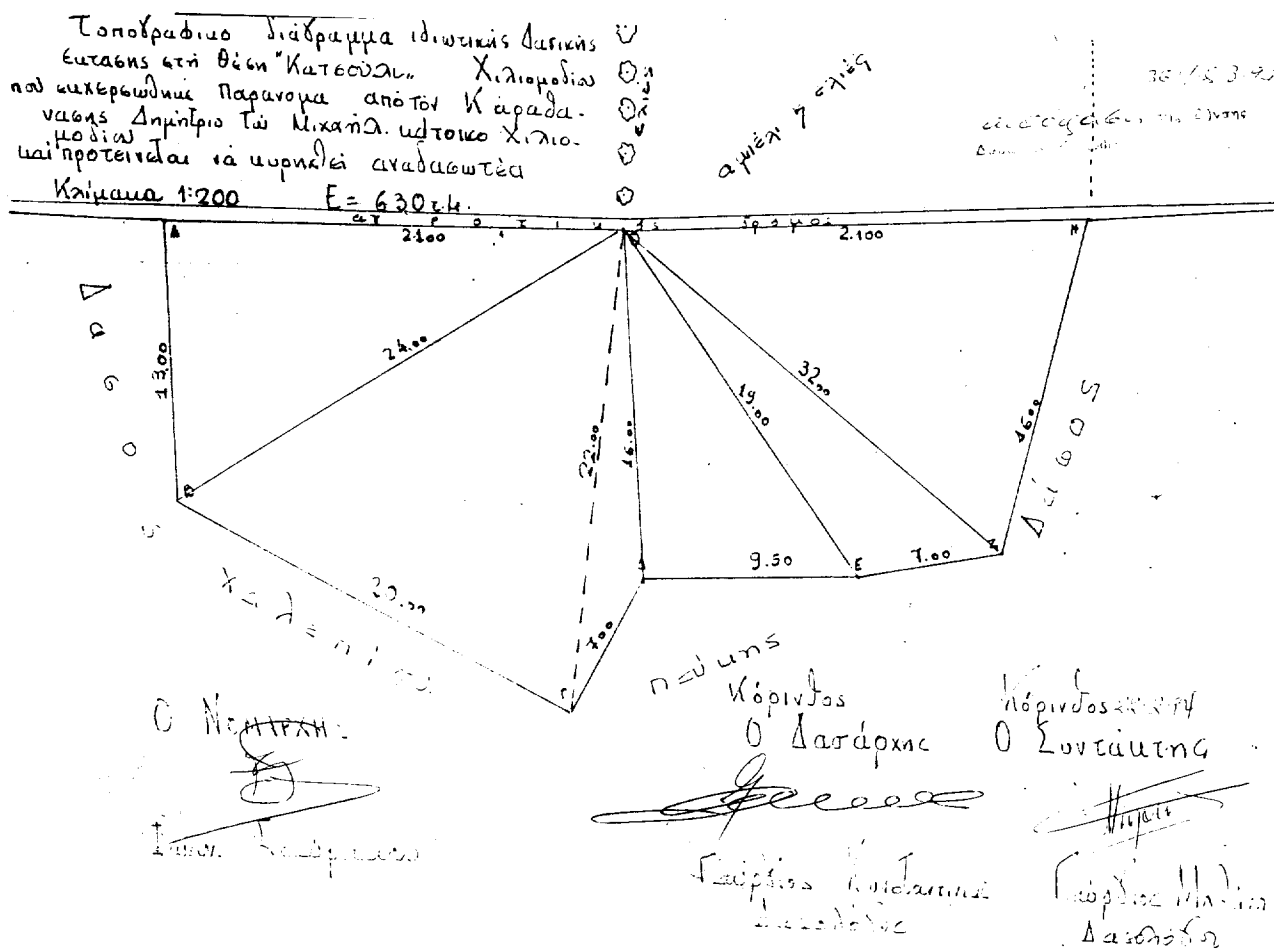 Τοπογραφικο διάγραμμα ιδιωτικής δασικής
έκτασης στή θέση "Κατσούλι" Χιλιομοδίου
πού εκχερσώθηκε παράνομα από τόν Καραθα-
νάσης Δημήτριο τού Μιχαήλ κάτοικο Χιλιο-
μοδίου
καί προτείνεται νά κυρηχθεί αναδασωτέα
Κλίμακα 1:200 Ε= 630 τ.μ.
ελιές
αμπέλι ή ελιές
αγροτικός δρόμος
Α 21.00 Θ 21.00 Η
Δάσος
13.00
24.00
22.00
16.00
19.00
32.00
16.00
Δάσος
Β
20.00
Γ
7.00
Δ
9.50
Ε
7.00
Ζ
χαλέπιος
πεύκης
Ο Νομάρχης
Κόρινθος
Ο Δασάρχης
Γεώργιος
Δασολόγος
Κόρινθος
Ο Συντάκτης
Γεώργιος
Δασολόγος